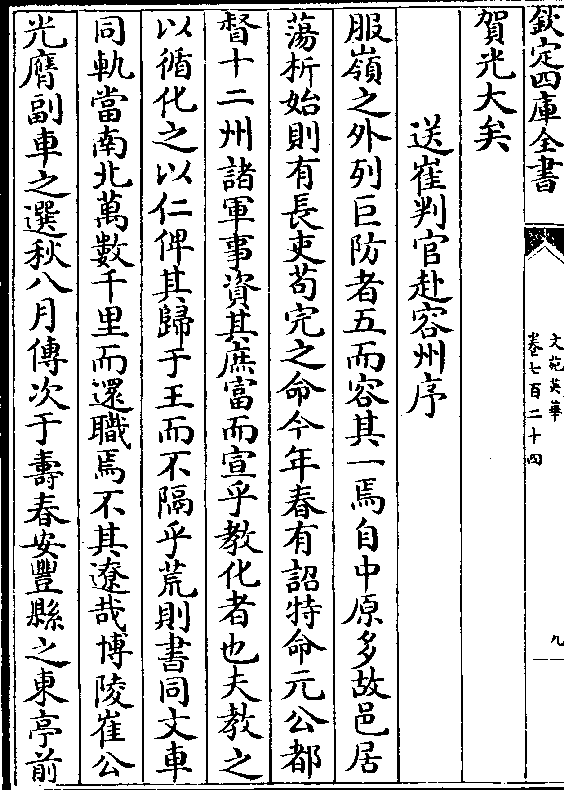 欽定四庫全書
文苑英華
卷七百二十四
九
賀光大矣
送崔判官赴容州序
服嶺之外列巨防者五而容其一焉自中原多故邑居
蕩析始則有長吏苟完之命今年春有詔特命元公都
督十二州諸軍事資其庶富而宣乎教化者也夫教之
以循化之以仁俾其歸于王而不隔乎荒則書同文車
同軌當南北萬數千里而還職焉不其遼哉博陵崔公
光膺副車之選秋八月傳次于壽春安豐縣之東亭前